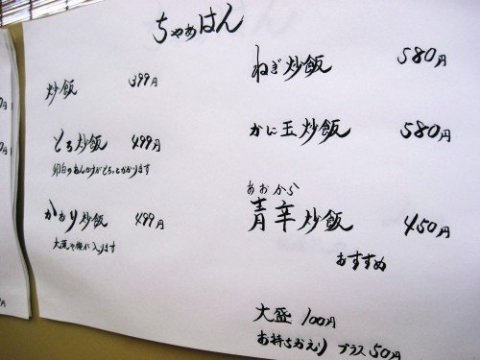 ちゃあはん
炒飯 399円
とろ炒飯 499円
卵白のあんかけがとろっとかかります
かおり炒飯 499円
大葉や梅に入ります
ねぎ炒飯 580円
かに玉炒飯 580円
あおから
青辛炒飯 450円
おすすめ
大盛 100円
お持ちかえり プラス50円